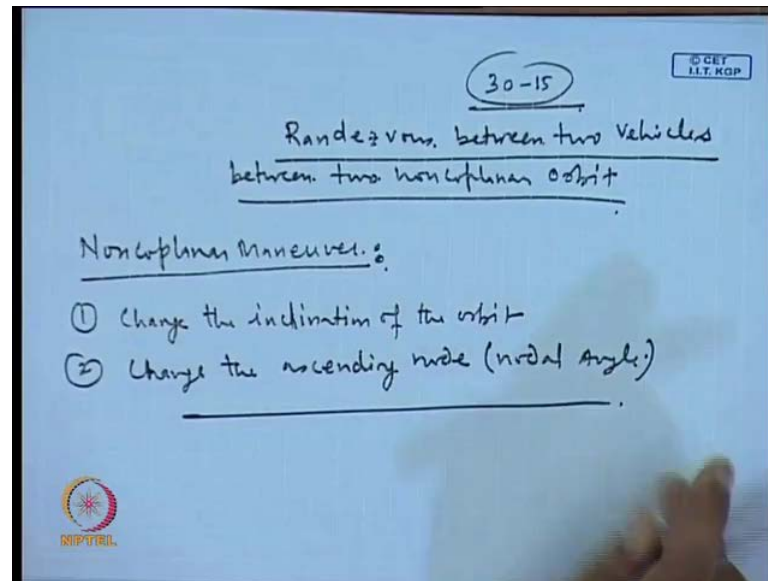 30-15
© CET
I.I.T. KGP
Randezvous between two vehicles
between two noncoplanar orbit
Noncoplanar Maneuver:
① Change the inclination of the orbit
② Change the ascending node (nodal angle.)
NPTEL